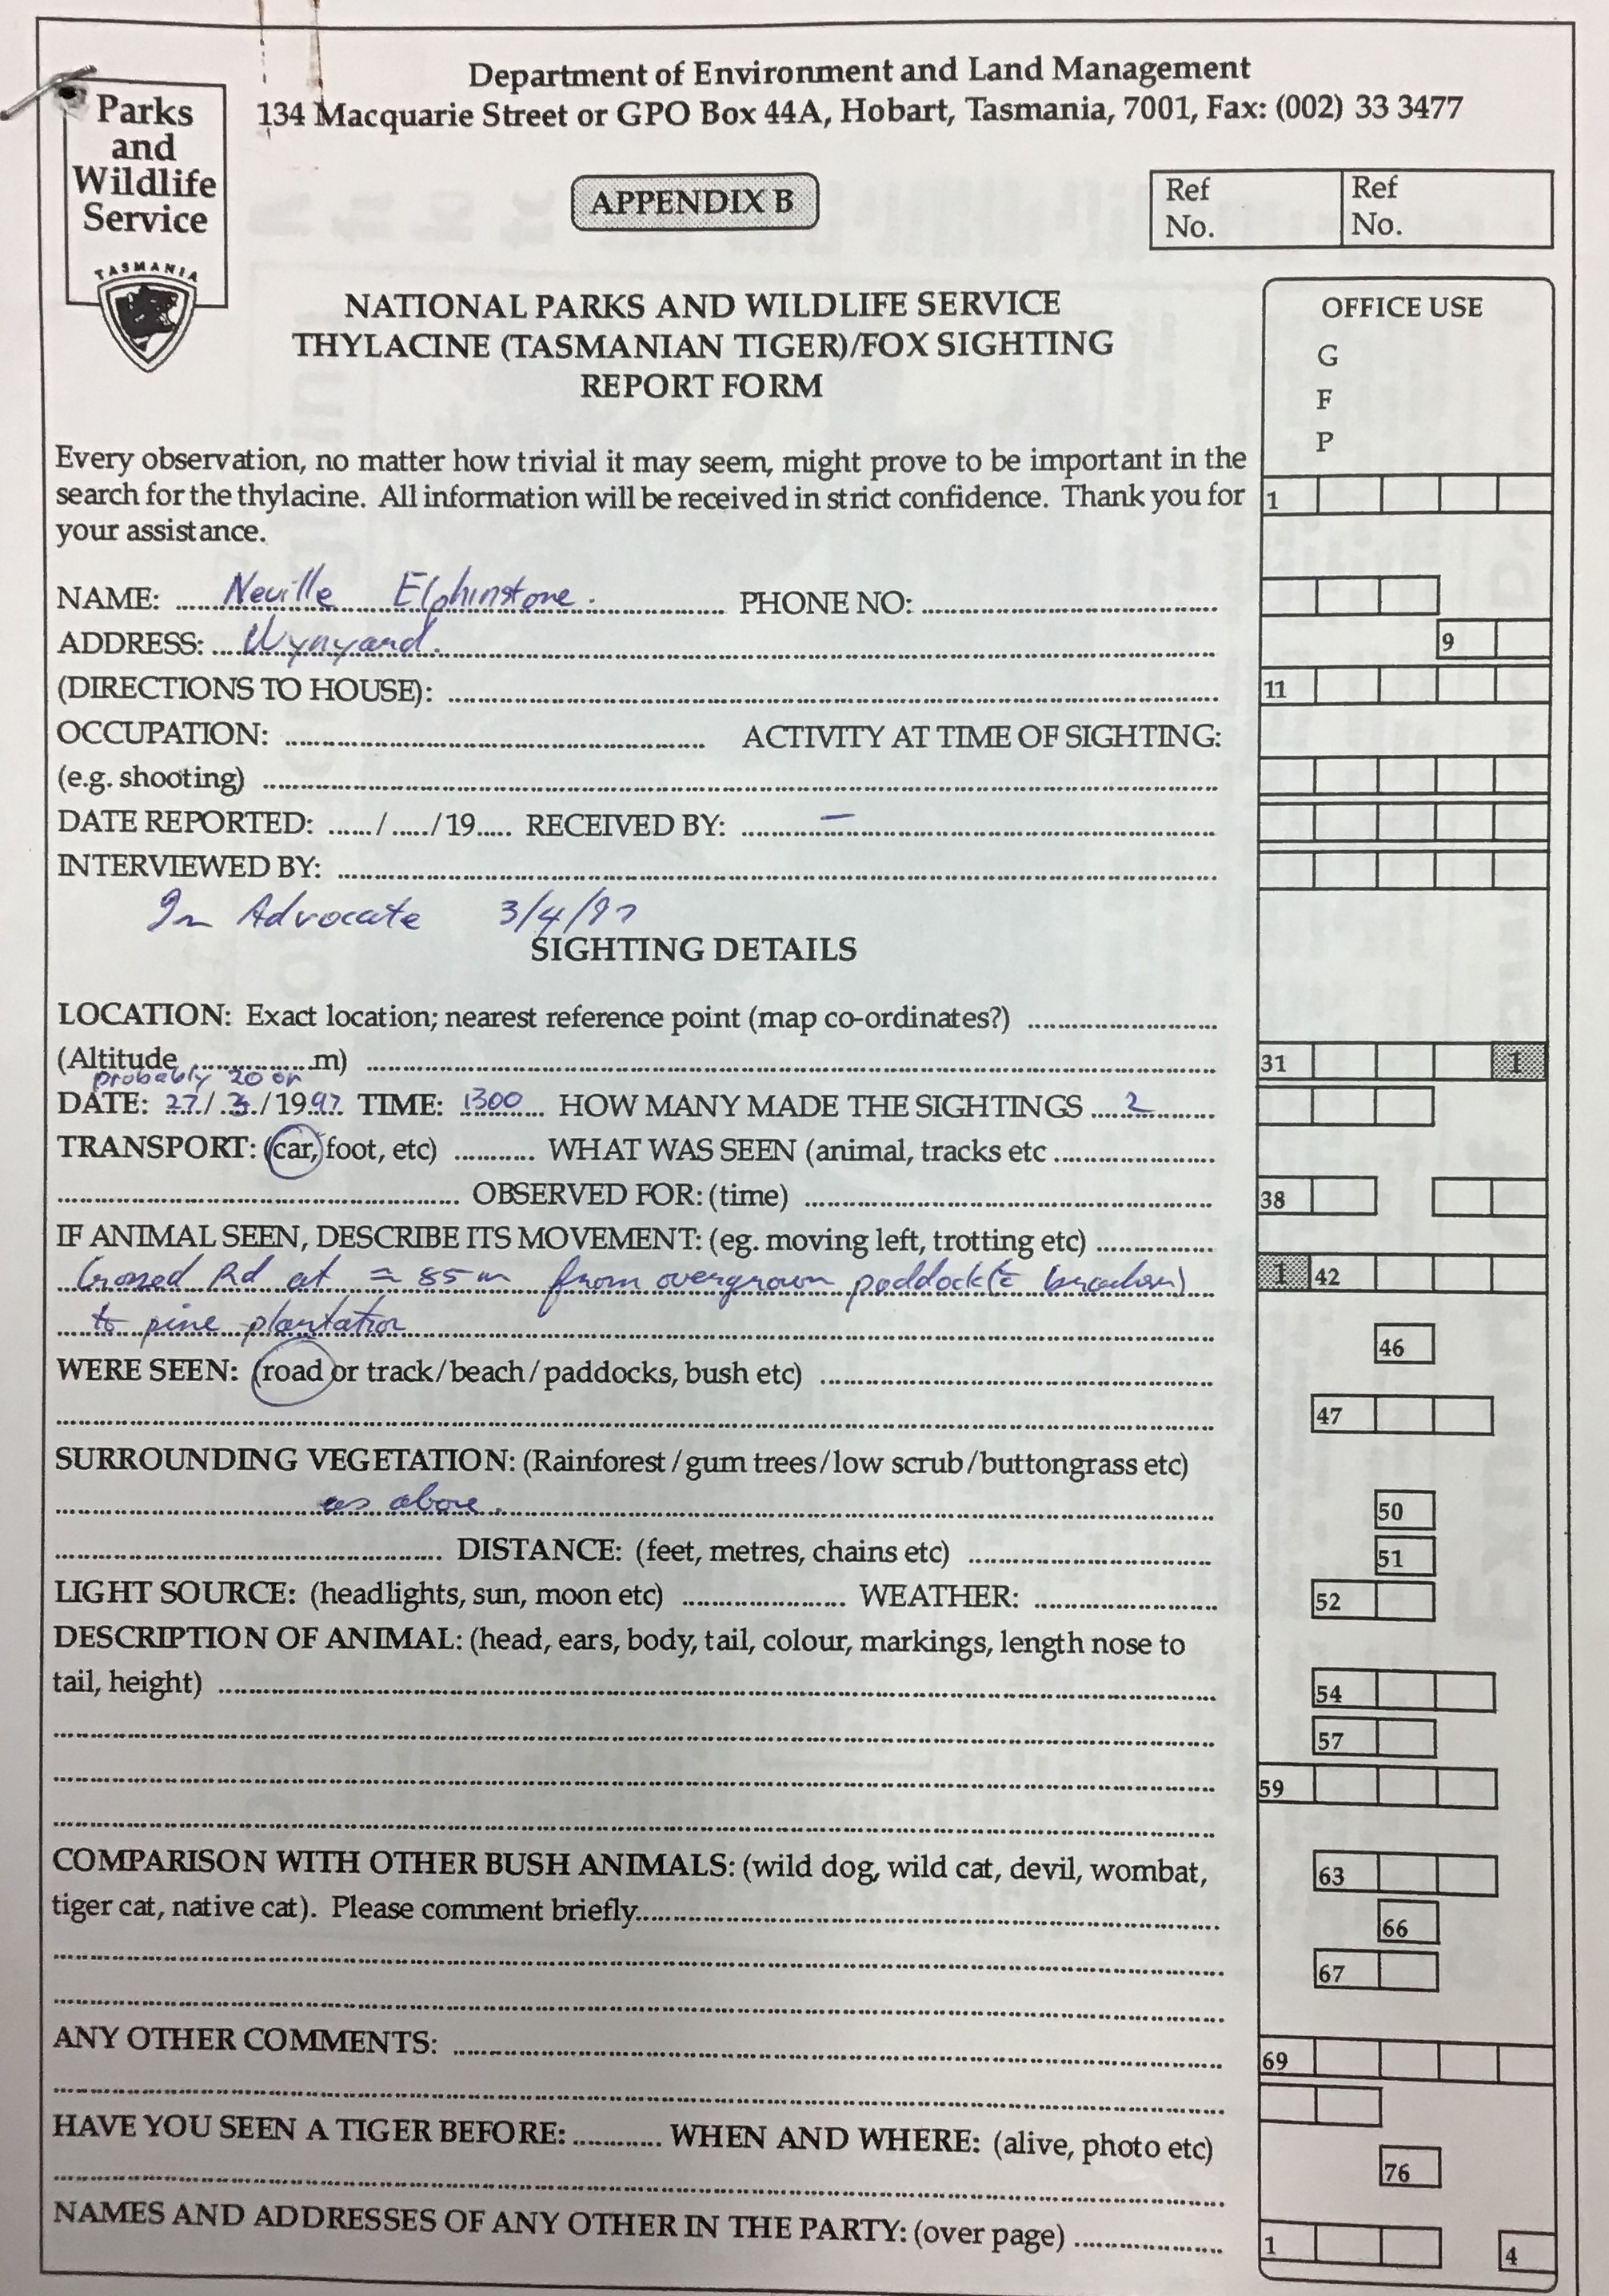 Department of Environment and Land Management
134 Macquarie Street or GPO Box 44A, Hobart, Tasmania, 7001, Fax: (002) 33 3477
Parks
and
Wildlife
Service
TASMANIA
APPENDIX B
Ref No.
Ref No.
NATIONAL PARKS AND WILDLIFE SERVICE
THYLACINE (TASMANIAN TIGER)/FOX SIGHTING
REPORT FORM
OFFICE USE
G
F
P
Every observation, no matter how trivial it may seem, might prove to be important in the
search for the thylacine. All information will be received in strict confidence. Thank you for
your assistance.
1
NAME: Neville Elphinstone. PHONE NO:
ADDRESS: Wynyard.
9
(DIRECTIONS TO HOUSE):
11
OCCUPATION: ACTIVITY AT TIME OF SIGHTING:
(e.g. shooting)
DATE REPORTED: ...../...../19..... RECEIVED BY: —
INTERVIEWED BY:
In Advocate 3/4/97
SIGHTING DETAILS
LOCATION: Exact location; nearest reference point (map co-ordinates?)
(Altitude ..............m)
31 1
probably 20 or
DATE: 27/3/1997 TIME: 1300 HOW MANY MADE THE SIGHTINGS 2
TRANSPORT: (car, foot, etc) WHAT WAS SEEN (animal, tracks etc
OBSERVED FOR: (time)
38
IF ANIMAL SEEN, DESCRIBE ITS MOVEMENT: (eg. moving left, trotting etc)
Crossed Rd at ≈ 85m from overgrown paddock
1 42
to pine plantation
46
WERE SEEN: (road or track/beach/paddocks, bush etc)
47
SURROUNDING VEGETATION: (Rainforest/gum trees/low scrub/buttongrass etc)
as above.
50
DISTANCE: (feet, metres, chains etc)
51
LIGHT SOURCE: (headlights, sun, moon etc) WEATHER:
52
DESCRIPTION OF ANIMAL: (head, ears, body, tail, colour, markings, length nose to
tail, height)
54
57
59
COMPARISON WITH OTHER BUSH ANIMALS: (wild dog, wild cat, devil, wombat,
63
tiger cat, native cat). Please comment briefly
66
67
ANY OTHER COMMENTS:
69
HAVE YOU SEEN A TIGER BEFORE: WHEN AND WHERE: (alive, photo etc)
76
NAMES AND ADDRESSES OF ANY OTHER IN THE PARTY: (over page)
1 4